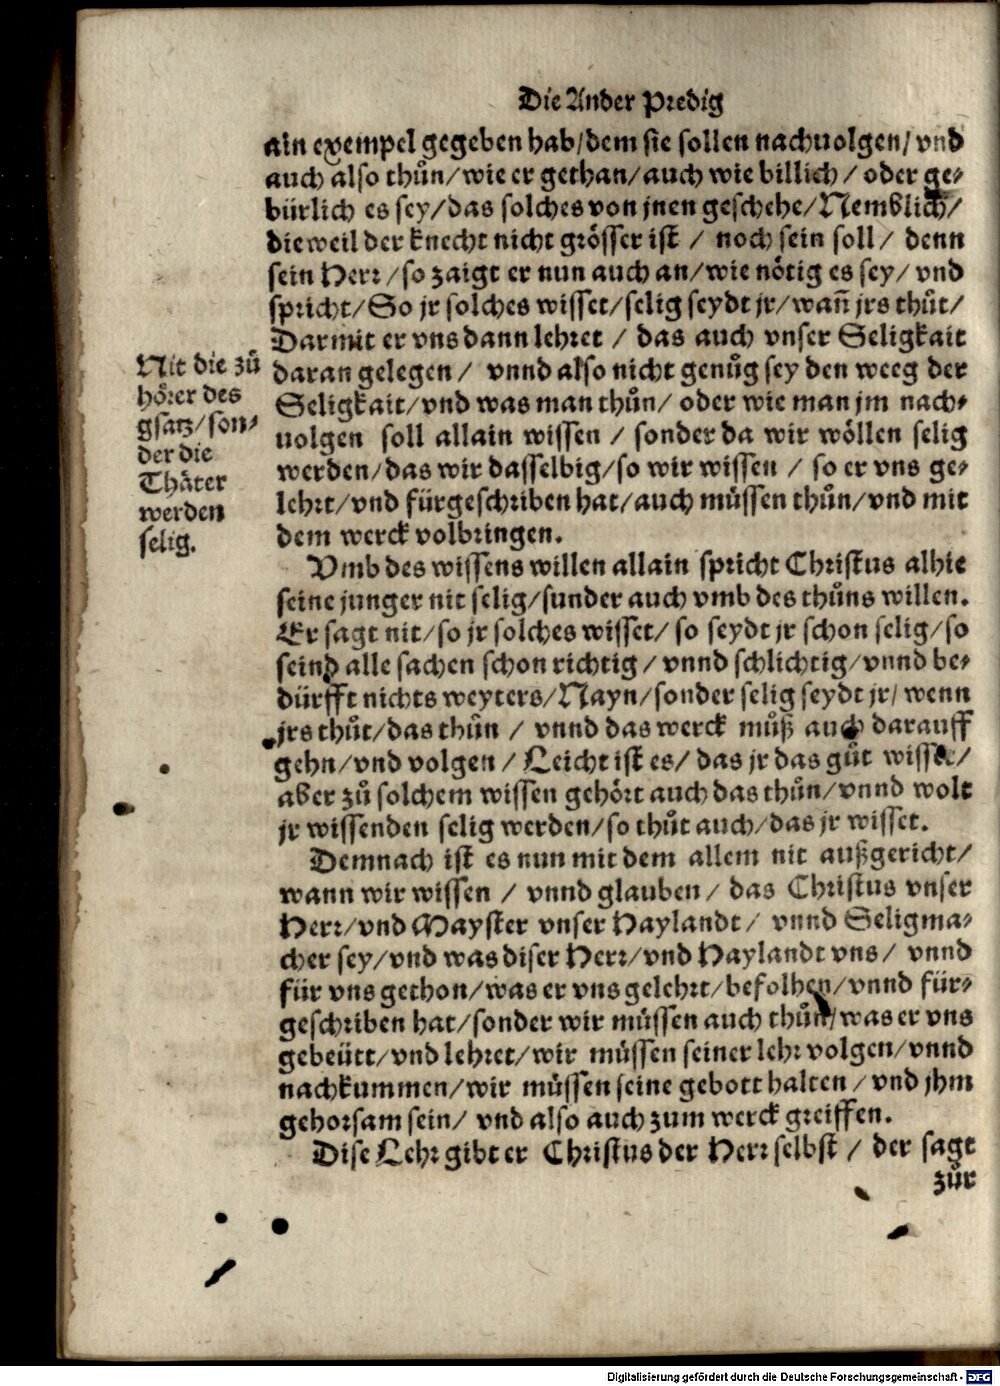 Die Ander Predig
ain exempel gegeben hab/dem sie sollen nachuolgen/vnd
auch also thůn/wie er gethan/auch wie billich/oder ge-
bürlich es sey/das solches von jnen geschehe/Nemblich/
dieweil der knecht nicht grösser ist / noch sein soll/ denn
sein Herr/so zaigt er nun auch an/wie nötig es sey/vnd
spricht/So jr solches wisset/selig seydt jr/wañ jrs thůt/
Darmit er vns dann lehret / das auch vnser Seligkait
daran gelegen/ vnnd also nicht genůg sey den weeg der
Seligkait/vnd was man thůn/ oder wie man jm nach-
uolgen soll allain wissen / sonder da wir wöllen selig
werden/das wir dasselbig/so wir wissen / so er vns ge-
lehrt/vnd fürgeschriben hat/auch müssen thůn/vnd mit
dem werck volbringen.
Nit die zů
hörer des
gsatz/son-
der die
Thäter
werden
selig.
Vmb des wissens willen allain spricht Christus alhie
seine junger nit selig/sunder auch vmb des thůns willen.
Er sagt nit/so jr solches wisset/ so seydt jr schon selig/so
seind alle sachen schon richtig/vnnd schlichtig/vnnd be-
dürfft nichts weyters/Nayn/sonder selig seydt jr/wenn
jrs thůt/das thůn / vnnd das werck můß auch darauff
gehn/vnd volgen/Leicht ist es/das jr das gůt wisset/
aber zů solchem wissen gehört auch das thůn/vnnd wolt
jr wissenden selig werden/so thůt auch/das jr wisset.
Demnach ist es nun mit dem allem nit außgericht/
wann wir wissen / vnnd glauben/ das Christus vnser
Herr/vnd Mayster vnser Haylandt/ vnnd Seligma-
cher sey/vnd was diser Herr/vnd Haylandt vns/ vnnd
für vns gethon/was er vns gelehrt/befolhen/vnnd für-
geschriben hat/sonder wir müssen auch thůn/was er vns
gebeütt/vnd lehret/wir müssen seiner lehr volgen/vnnd
nachkummen/wir müssen seine gebott halten/vnd jhm
gehorsam sein/ vnd also auch zum werck greiffen.
Dise Lehr gibt er Christus der Herr selbst / der sagt
zůr
Digitalisierung gefördert durch die Deutsche Forschungsgemeinschaft - DFG